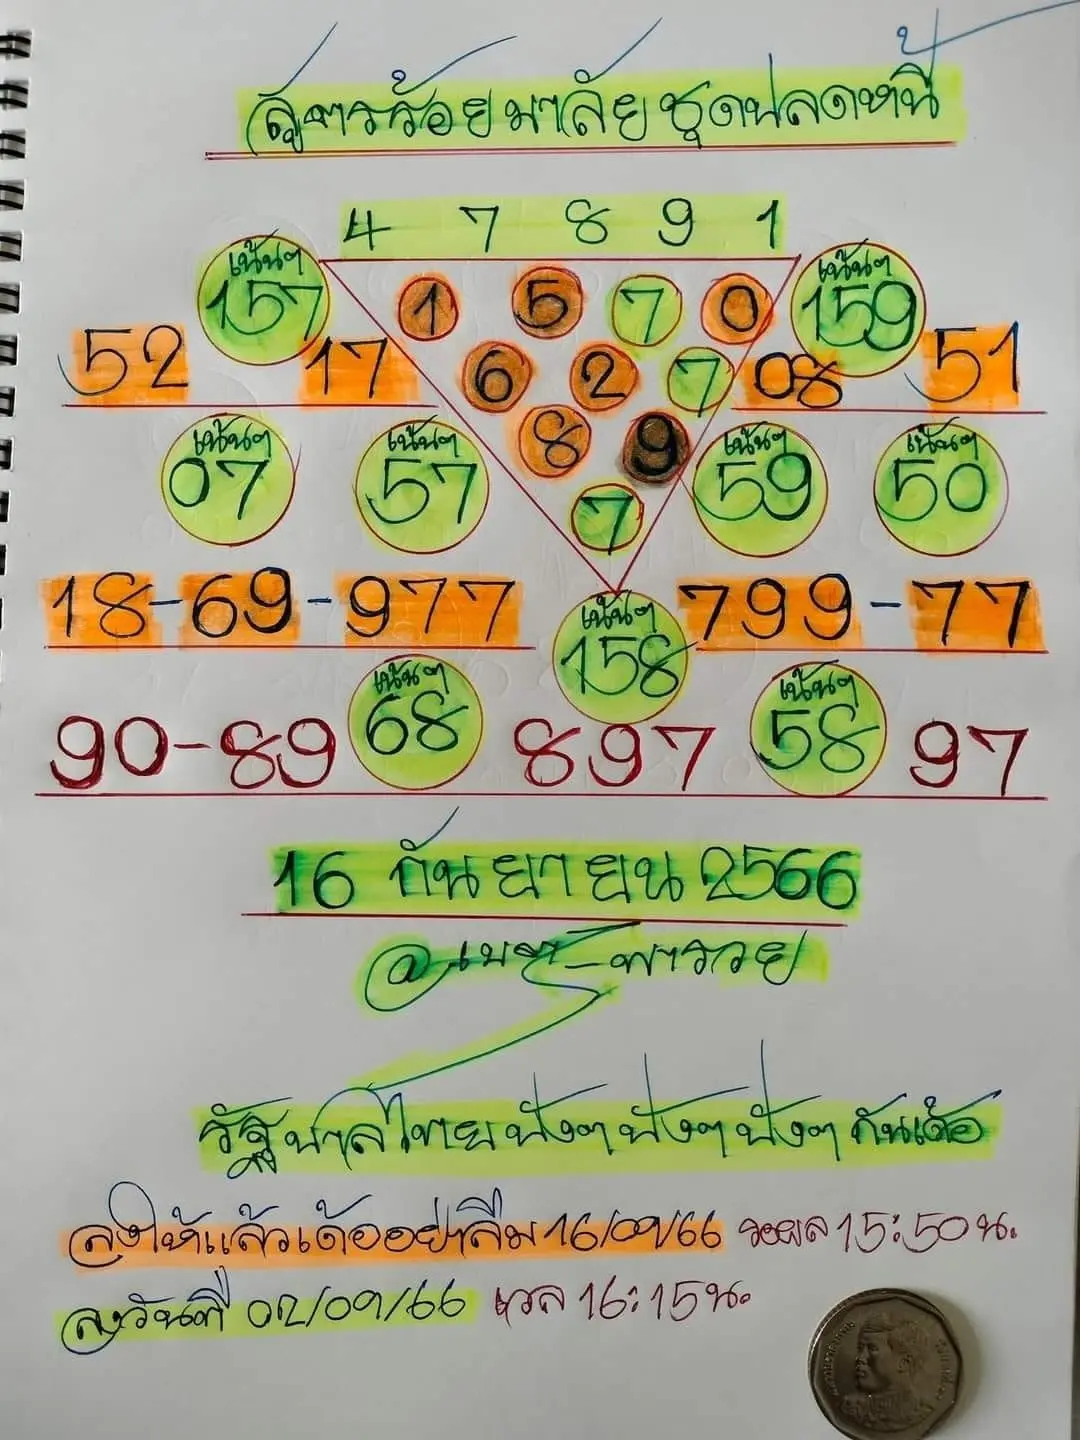 สูตรร้อยมาลัยชุดปลดหนี้
4 7 8 9 1
เน้นๆ เน้นๆ
157 1 5 7 0 159
52 17 6 2 7 08 51
เน้นๆ เน้นๆ 8 9 เน้นๆ เน้นๆ
07 57 59 50
7
18-69-977 เน้นๆ 799-77
158
เน้นๆ เน้นๆ
90-89 68 897 58 97
16 กันยายน 2566
พารวย
รัฐบาลไทยปังๆปังๆปังๆกันเด้อ
ลงให้แล้วเด้ออย่าลืม 16/09/66 รอผล 15:50น.
ลงวันที่ 02/09/66 เวล 16:15น.